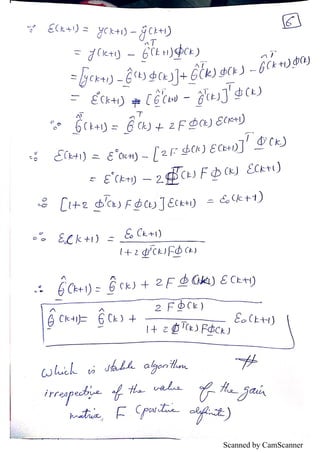 6
∵ ε(k+1) = y(k+1) - ŷ(k+1)
= y(k+1) - θ̂ᵀ(k+1) φ(k)
= [y(k+1) - θ̂ᵀ(k) φ(k)] + θ̂ᵀ(k) φ(k) - θ̂ᵀ(k+1) φ(k)
= ε°(k+1) - [θ̂(k+1) - θ̂(k)]ᵀ φ(k)
∵ θ̂(k+1) = θ̂(k) + 2 F φ(k) ε(k+1)
∴ ε(k+1) = ε°(k+1) - [2 F φ(k) ε(k+1)]ᵀ φ(k)
= ε°(k+1) - 2 φᵀ(k) F φ(k) ε(k+1)
∴ [1+2 φᵀ(k) F φ(k)] ε(k+1) = ε₀(k+1)
∴ ε(k+1) = ε₀(k+1) / (1+2 φᵀ(k) F φ(k))
∴ θ̂(k+1) = θ̂(k) + 2 F φ(k) ε(k+1)
θ̂(k+1) = θ̂(k) + 2 F φ(k) / (1+2 φᵀ(k) F φ(k)) ε₀(k+1)
which is stable algorithm #
irrespective of the value of the gain
matrix, F (positive definite)
Scanned by CamScanner